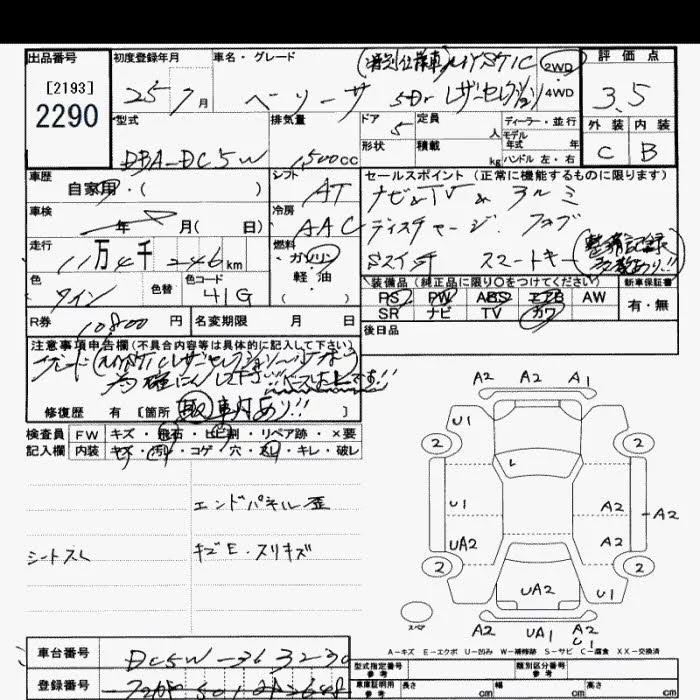 出品番号
[2193]
2290
初度登録年月
25 7 月
車名・グレード
(特別仕様車) MYSTIC
ベリーサ 5Dr レザーセレクション
2WD
4WD
評価点
3.5
外装 内装
C B
型式
DBA-DC5W
排気量
1,500cc
ドア 5
定員 人
形状
積載 kg
ディーラー・並行
モデル
年式 年
ハンドル 左・右
車歴
自家用・( )
シフト
AT
セールスポイント (正常に機能するものに限ります)
ナビ&TV & アルミ
ディスチャージ. フォブ
Sスイッチ スマートキー
(整備記録多数あり!!)
車検
年 月( 日)
冷房
AAC
走行
11万4千246km
燃料
ガソリン
軽・油
( )
色
ワイン
色替
色コード
41G
装備品 (純正品に限り○をつけてください)
PS PW ABS エアB AW
SR ナビ TV カワ
新車保証書
有・無
R券
10800円
名変期限 月 日
後日品
注意事項申告欄 (不具合内容等は具体的に記入して下さい)
修復歴 有 [箇所 ]
取 車灯あり!!
検査員
記入欄
FW キズ・飛石・ヒビ割・リペア跡・×要
内装 キズ・汚れ・コゲ・穴・スレ・キレ・破レ
エンドパネル歪
シートスレ
キズE・スリキズ
A2 A2 A1
U1
2 2
L
U1 A2
A2
UA2 A2
2 2
UA2 U1
スペア
A2 UA1 A2
U1
A-キズ E-エクボ U-凹み W-補修跡 S-サビ C-腐食 XX-交換済
車台番号
DC5W-363230
登録番号
型式指定番号
参考
類別区分番号
参考
車庫証明用
参考
長さ cm
幅 cm
高さ cm